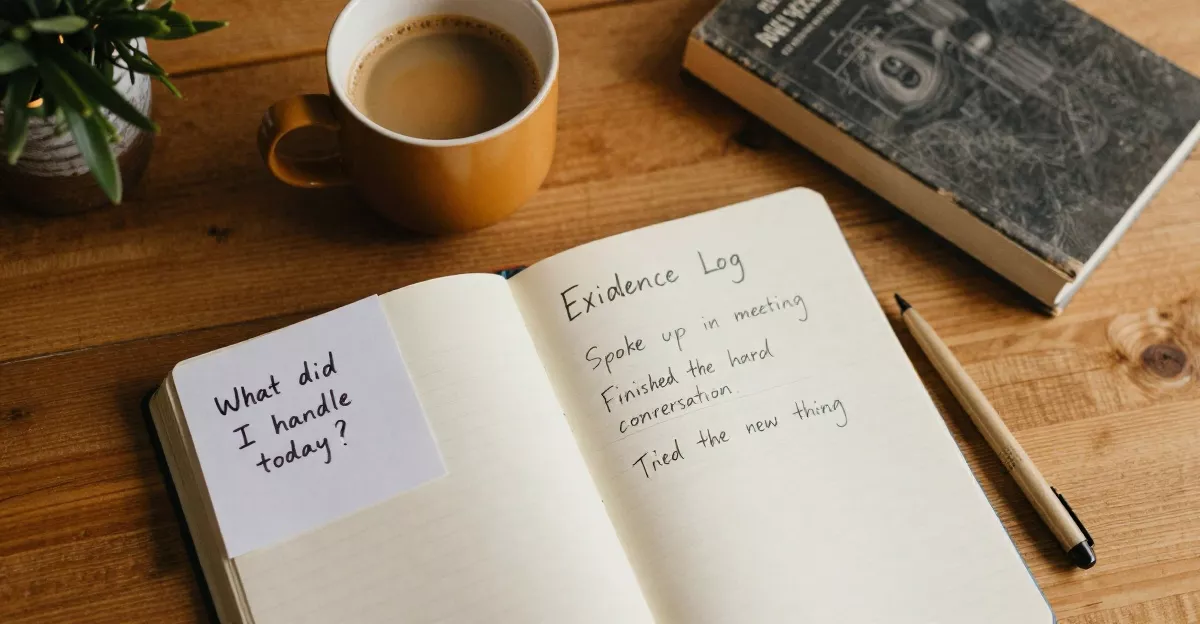 What did
I handle
today?
Exidence Log
Spoke up in meeting
Finished the hard
conresation.
Tried the new thing